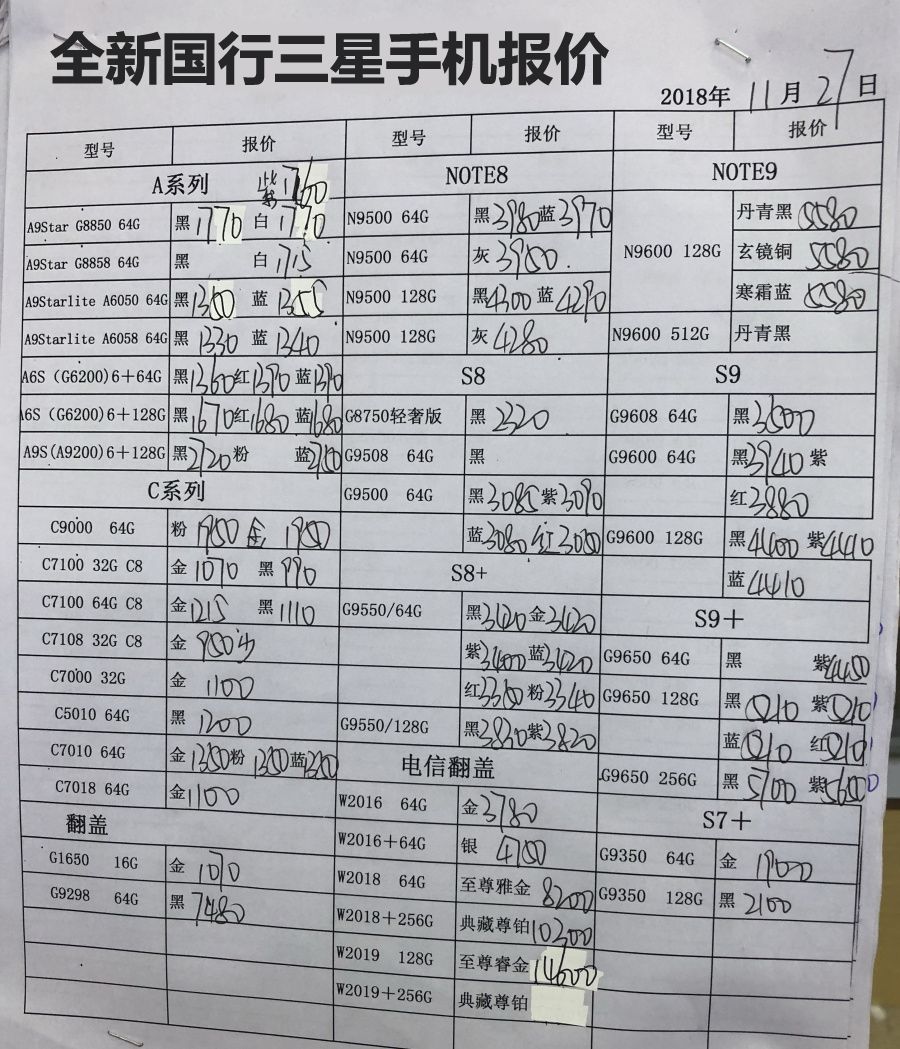 全新国行三星手机报价
2018年 11月 27日
型号 报价 型号 报价 型号 报价
A系列 紫1760
A9Star G8850 64G 黑1770 白1770
A9Star G8858 64G 黑 白1715
A9Starlite A6050 64G 黑1350 蓝1355
A9Starlite A6058 64G 黑1330 蓝1340
A6S (G6200)6+64G 黑1360 红1390 蓝1390
A6S (G6200)6+128G 黑1670 红1680 蓝1680
A9S(A9200)6+128G 黑2120 粉 蓝
C系列
C9000 64G 粉1950 金1950
C7100 32G C8 金1070 黑990
C7100 64G C8 金1215 黑1110
C7108 32G C8 金950少
C7000 32G 金1100
C5010 64G 黑1200
C7010 64G 金1350 粉1350 蓝
C7018 64G 金1100
翻盖
G1650 16G 金1070
G9298 64G 黑7480
NOTE8
N9500 64G 黑3980 蓝3970
N9500 64G 灰3950
N9500 128G 黑4300 蓝4290
N9500 128G 灰4280
S8
G8750轻奢版 黑2320
G9508 64G 黑
G9500 64G 黑3085 紫3090
蓝3080 红3080
S8+
G9550/64G 黑3420 金3420
紫3400 蓝3420
红3350 粉3340
G9550/128G 黑3830 紫3820
电信翻盖
W2016 64G 金3780
W2016+64G 银4750
W2018 64G 至尊雅金 8200
W2018+256G 典藏尊铂10300
W2019 128G 至尊睿金14600
W2019+256G 典藏尊铂
NOTE9
N9600 128G 丹青黑5580
玄镜铜5580
寒霜蓝5580
N9600 512G 丹青黑
S9
G9608 64G 黑3500
G9600 64G 黑3940 紫
红3880
G9600 128G 黑4400 紫4410
蓝4410
S9+
G9650 64G 黑 紫4450
G9650 128G 黑5210 紫5210
蓝5210 红5210
G9650 256G 黑5700 紫5650
S7+
G9350 64G 金1900
G9350 128G 黑2100